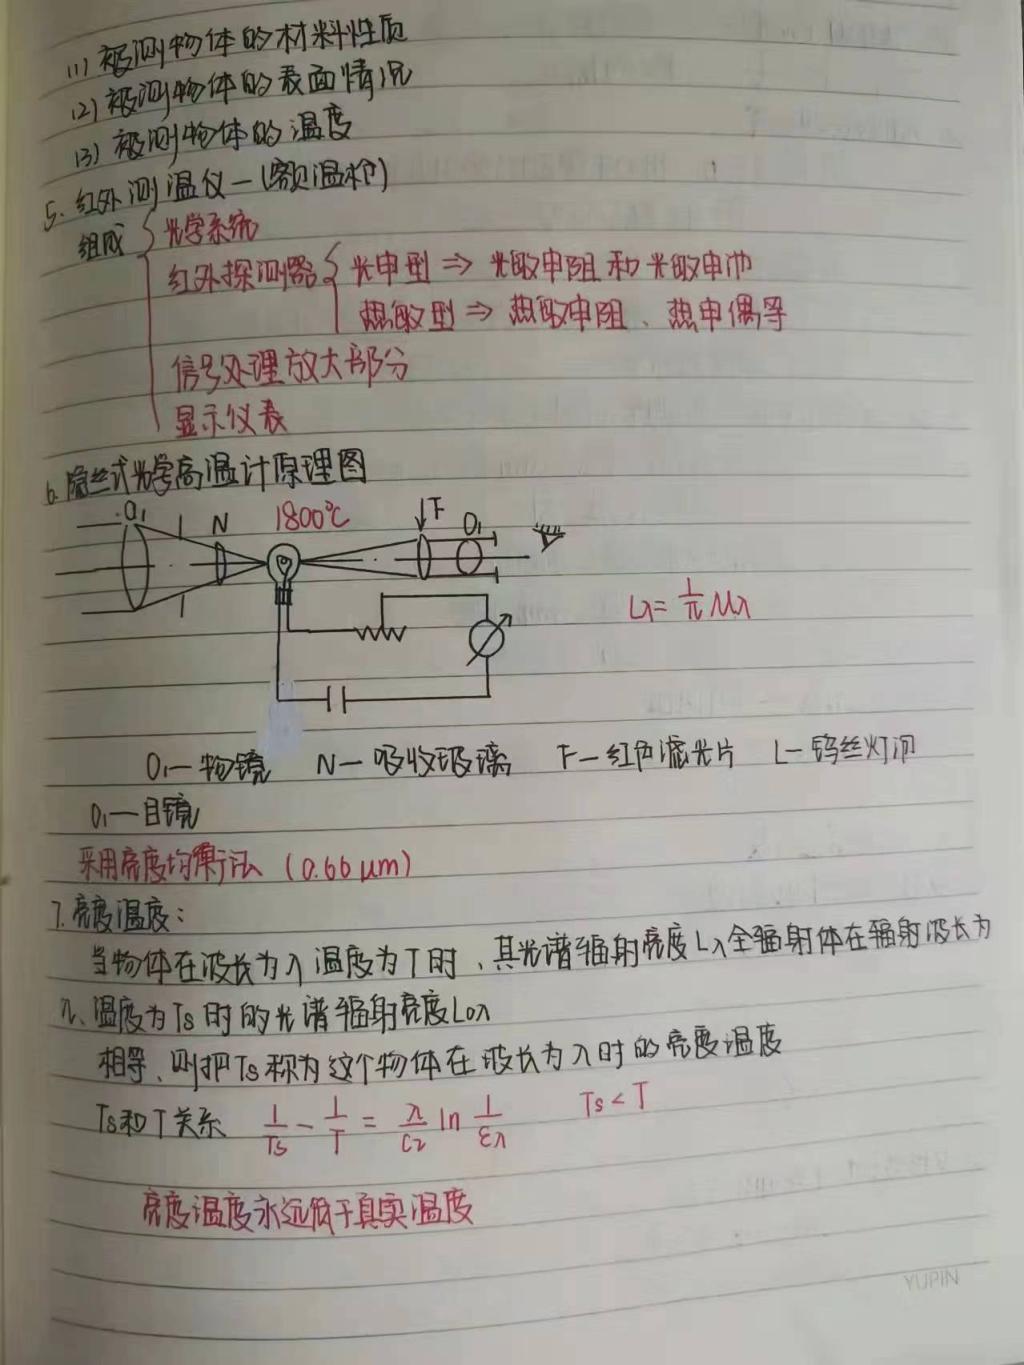 (1) 被测物体的材料性质
(2) 被测物体的表面情况
(3) 被测物体的温度
5. 红外测温仪—(额温枪)
组成 { 光学系统
红外探测器 { 光电型 ⇒ 光敏电阻和光敏电池
热敏型 ⇒ 热敏电阻、热电偶等
信号处理放大部分
显示仪表
6. 隐丝式光学高温计原理图
O₁ N 1800℃ F O₁
Lλ = 1/π Mλ
O₁—物镜 N—吸收玻璃 F—红色滤光片 L—钨丝灯泡
O₁—目镜
采用亮度均衡法 (0.66 μm)
7. 亮度温度:
当物体在波长为λ温度为T时、其光谱辐射亮度Lλ全辐射体在辐射波长为
λ、温度为Ts时的光谱辐射亮度L0λ
相等、则把Ts称为这个物体在波长为λ时的亮度温度
Ts和T关系 1/Ts − 1/T = λ/C2 ln 1/ελ Ts < T
亮度温度永远低于真实温度
YUPIN